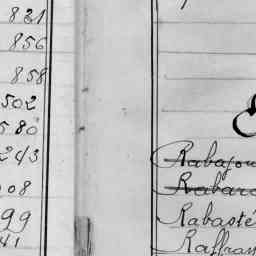 821
856
858
502
580
243
08
99
41
Rabajou
Rabaro
Rabasté
Raffran